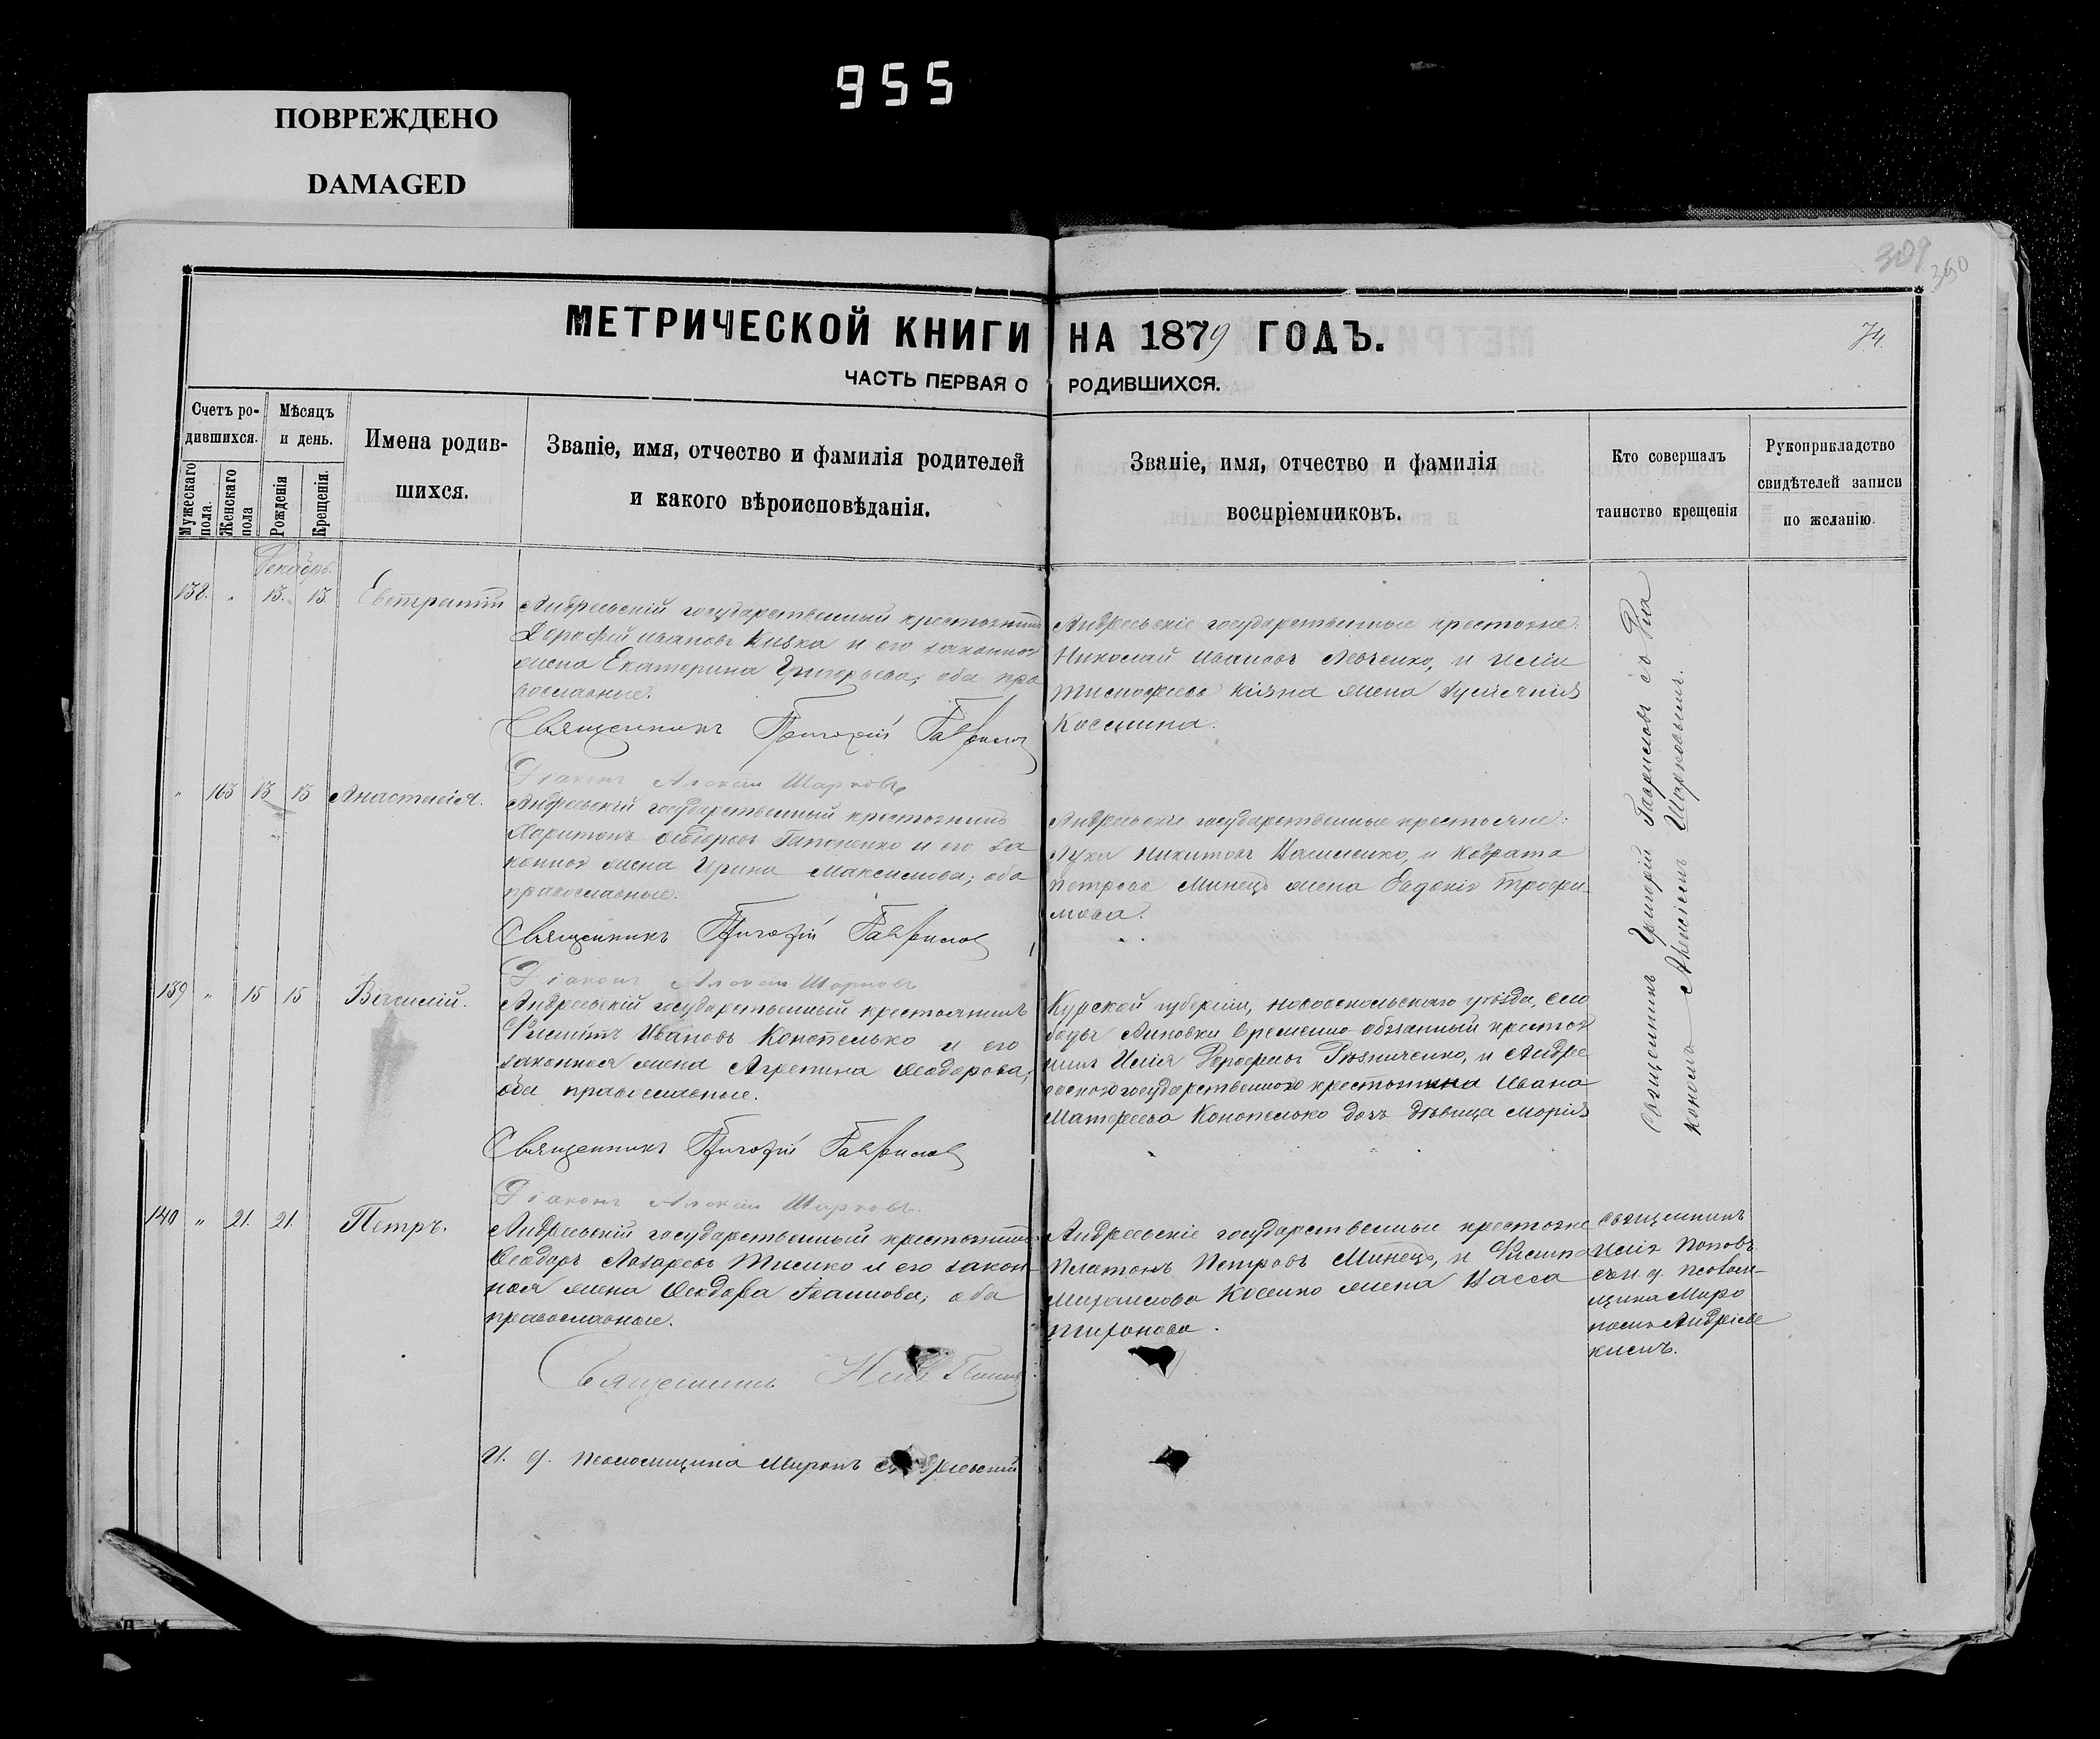 955
ПОВРЕЖДЕНО
DAMAGED
309
350
МЕТРИЧЕСКОЙ КНИГИ НА 1879 ГОДЪ.
74.
ЧАСТЬ ПЕРВАЯ О РОДИВШИХСЯ.
Счетъ ро-
дившихся.
Мужескаго пола.
Женскаго пола
Мѣсяцъ
и день.
Рожденія
Крещенія.
Имена родив-
шихся.
Званіе, имя, отчество и фамилія родителей
и какого вѣроисповѣданія.
Званіе, имя, отчество и фамилія
воспріемниковъ.
Кто совершалъ
таинство крещенія
Рукоприкладство
свидѣтелей записи
по желанію.
Декабрь.
138. " 13. 13. Евстратій
Андреевскій государственный крестьянинъ
Дорофей Ивановъ Кизка и его законная
жена Екатерина Григорьева; оба пра
вославные.
Священникъ Григорій Гавриловъ
Діаконъ Алексій Шарковъ
Андреевскіе государственные крестьяне:
Николай Ивановъ Левченко, и Иліи
Тимофеева жена
Космина.
" 163 13 13 Анастасія.
Андреевскій государственный крестьянинъ
Харитонъ Федоровъ Гапоненко и его за
конная жена Ирина Максимова; оба
православные.
Священникъ Григорій Гавриловъ
Діаконъ Алексій Шарковъ
Андреевскіе государственные крестьяне:
Лука Никитовъ и Кодрата
Петрова Минецъ жена Евдокія Трофи-
мова.
139 " 15 15 Василій.
Андреевскій государственный крестьянинъ
Филиппъ Ивановъ Конопелько и его
законная жена Агрепина Феодорова;
оба православные.
Священникъ Григорій Гавриловъ
Діаконъ Алексій Шарковъ
Курской губерніи, новооскольскаго уѣзда, сло
боды временно-обязанный крестья
нинъ Илія Дорофеевъ Рѣзниченко, и Андре
евскаго государственнаго крестьянина Ивана
Матфеева Конопелько дочь дѣвица Марія
Священникъ Григорій Гавриловъ съ діа
кономъ Алексіемъ Шарковымъ.
140 " 21. 21. Петръ.
Андреевскій государственный крестьянинъ
Феодоръ Лазаревъ и его закон
ная жена Феодора Іоаннова; оба
православные.
Священникъ Илія Поповъ
И. д. псаломщика Миронъ Андреевскій
Андреевскіе государственные крестьяне
Платонъ Петровъ Минецъ, и Филиппа
Михаилова Косенко жена Васса
Тихонова.
Священникъ
Илія Поповъ
съ и. д. псалом-
щика Миро
номъ Андреев
кимъ.